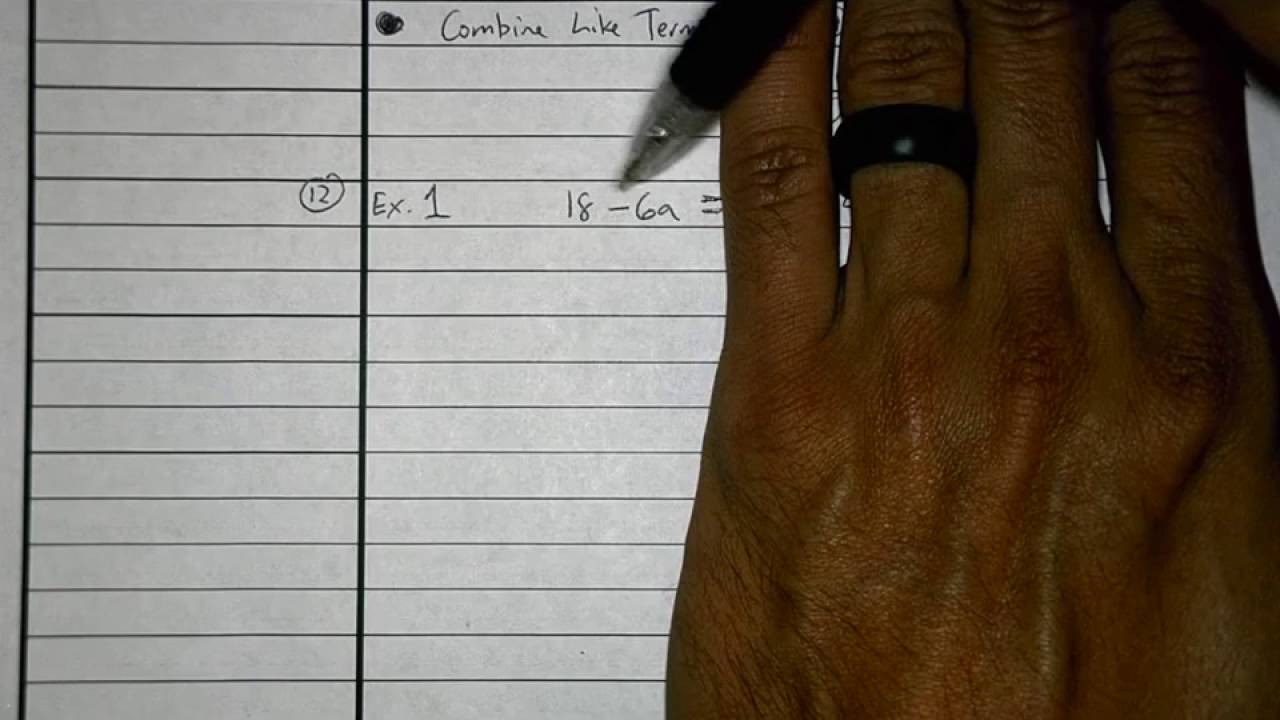 ● Combine Like Term
⑫ Ex. 1 18 - 6a =